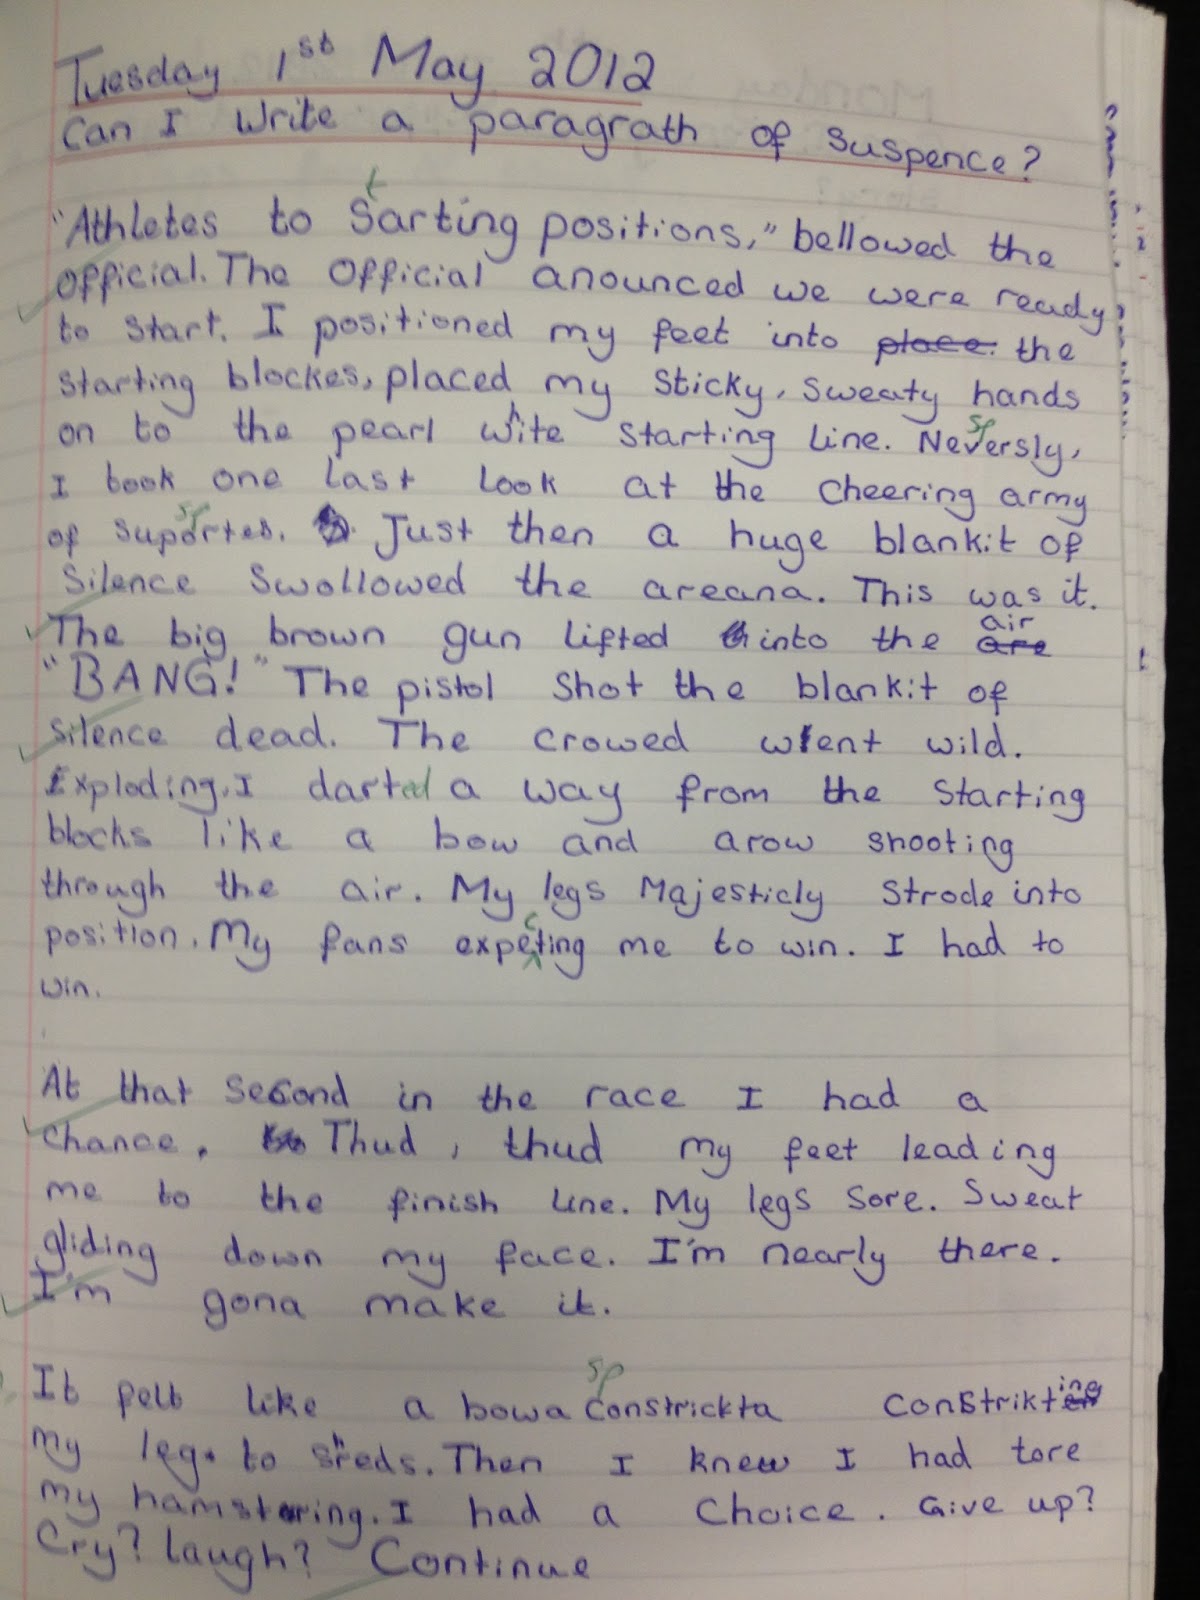 Tuesday 1st May 2012
Can I write a paragrath of suspence?
t
"Athletes to Sarting positions," bellowed the
official. The Official anounced we were ready
to start. I positioned my feet into place. the
starting blockes, placed my sticky, sweaty hands
on to the pearl white starting line. Neversly,
sp
I took one last look at the cheering army
of suportes. Just then a huge blankit of
sp
Silence swollowed the areana. This was it.
The big brown gun lifted into the are air
"BANG!" The pistol shot the blankit of
silence dead. The crowed went wild.
Exploding, I darted a way from the starting
blocks like a bow and arow shooting
through the air. My legs Majesticly strode into
position. My fans expecting me to win. I had to
win.
At that second in the race I had a
chance. Thud, thud my feet leading
me to the finish line. My legs sore. Sweat
gliding down my face. I'm nearly there.
I'm gona make it.
sp
It felt like a bowa constrickta constrikting
my leg. to shreds. Then I knew I had tore
my hamstoring. I had a choice. Give up?
Cry? laugh? Continue